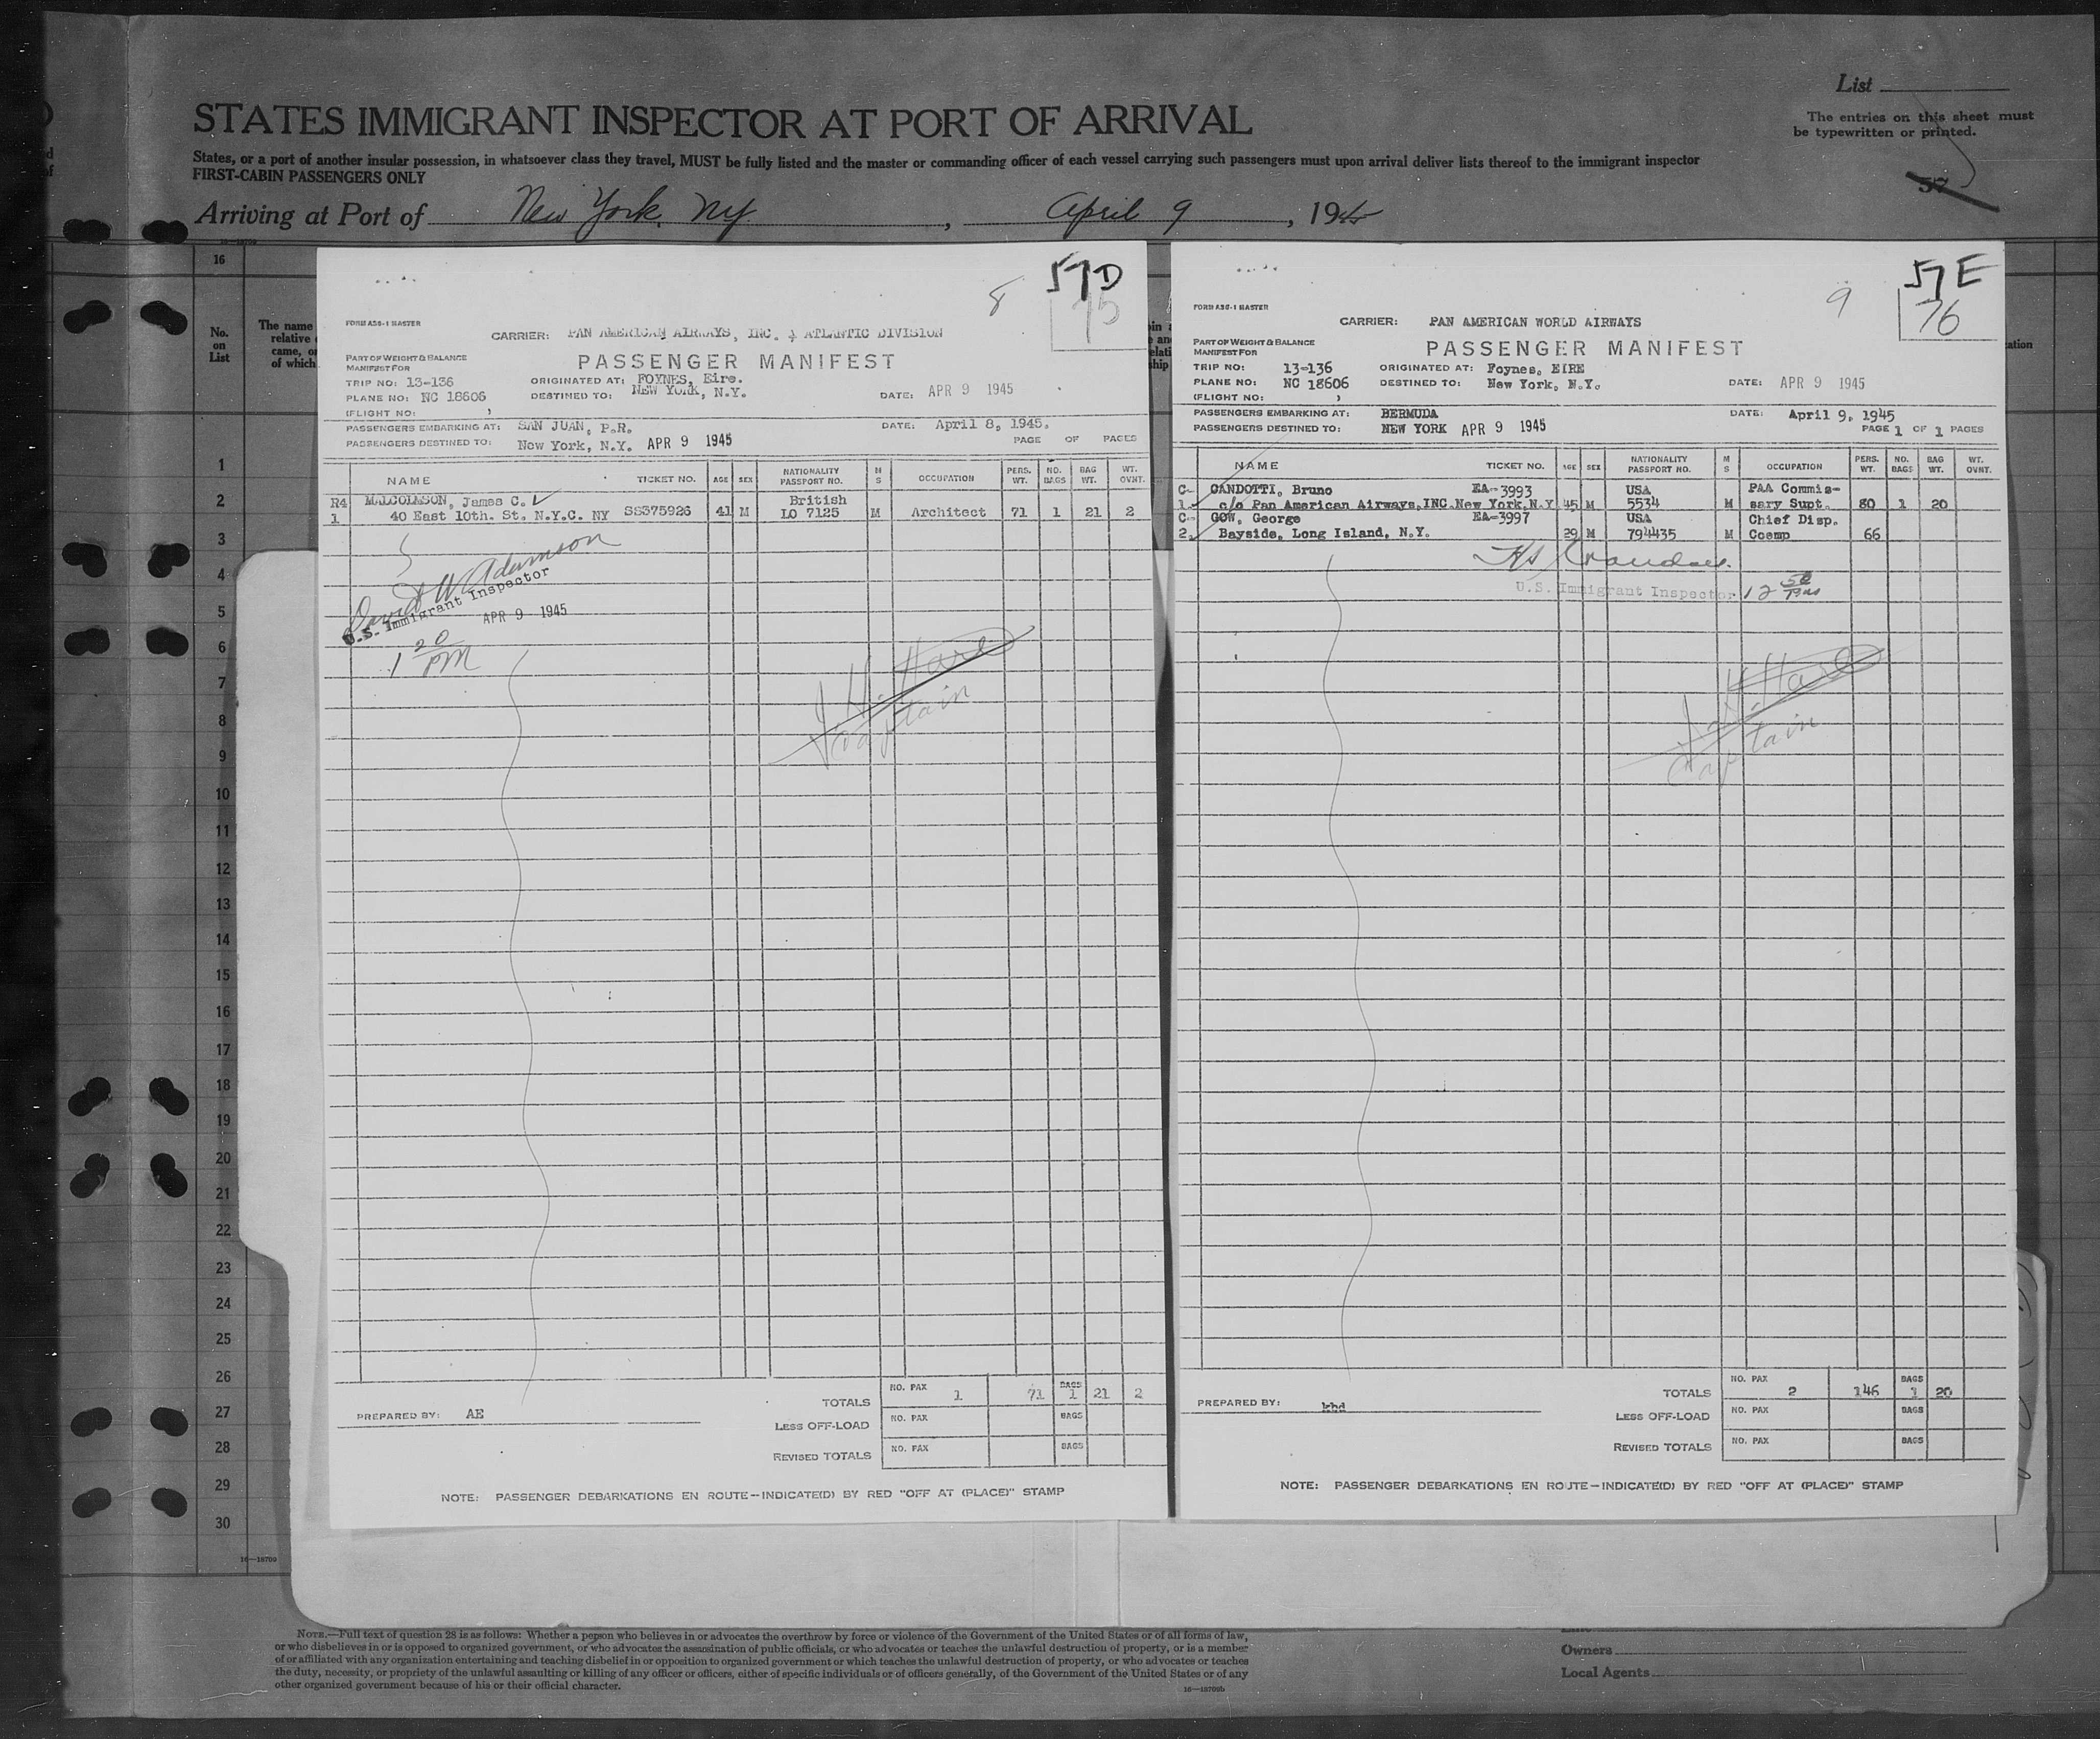 List
The entries on this sheet must
be typewritten or printed.
STATES IMMIGRANT INSPECTOR AT PORT OF ARRIVAL
States, or a port of another insular possession, in whatsoever class they travel, MUST be fully listed and the master or commanding officer of each vessel carrying such passengers must upon arrival deliver lists thereof to the immigrant inspector
FIRST-CABIN PASSENGERS ONLY
Arriving at Port of New York, NY, April 9, 194
16—18709
16
No.
on
List
The name
relative
came, o
of which
1
2
3
4
5
6
7
8
9
10
11
12
13
14
15
16
17
18
19
20
21
22
23
24
25
26
27
28
29
30
16—18709
8
57D
75
FORM A36-1 MASTER
CARRIER: PAN AMERICAN AIRWAYS, INC. ATLANTIC DIVISION
PART OF WEIGHT & BALANCE
MANIFEST FOR
PASSENGER MANIFEST
TRIP NO: 13-136 ORIGINATED AT: FOYNES, Eire.
PLANE NO: NC 18606 DESTINED TO: NEW YORK, N.Y. DATE: APR 9 1945
(FLIGHT NO: )
PASSENGERS EMBARKING AT: SAN JUAN, P.R. DATE: April 8, 1945.
PASSENGERS DESTINED TO: New York, N.Y. APR 9 1945 PAGE OF PAGES
NAME TICKET NO. AGE SEX NATIONALITY PASSPORT NO. M S OCCUPATION PERS. WT. NO. BAGS BAG WT. WT. OVNT.
R4 MALCOLMSON, James C. British
1 40 East 10th. St. N.Y.C. NY SS375926 41 M LO 7125 M Architect 71 1 21 2
David W Adamson
U.S. Immigrant Inspector
APR 9 1945
1 20 PM
J. H. Hart
Captain
TOTALS NO. PAX 1 71 BAGS 1 21 2
PREPARED BY: AE
LESS OFF-LOAD NO. PAX BAGS
REVISED TOTALS NO. PAX BAGS
NOTE: PASSENGER DEBARKATIONS EN ROUTE—INDICATE(D) BY RED "OFF AT (PLACE)" STAMP
9
57E
76
FORM A36-1 MASTER
CARRIER: PAN AMERICAN WORLD AIRWAYS
PART OF WEIGHT & BALANCE
MANIFEST FOR
PASSENGER MANIFEST
TRIP NO: 13-136 ORIGINATED AT: Foynes, EIRE
PLANE NO: NC 18606 DESTINED TO: New York, N.Y. DATE: APR 9 1945
(FLIGHT NO: )
PASSENGERS EMBARKING AT: BERMUDA DATE: April 9, 1945
PASSENGERS DESTINED TO: NEW YORK APR 9 1945 PAGE 1 OF 1 PAGES
NAME TICKET NO. AGE SEX NATIONALITY PASSPORT NO. M S OCCUPATION PERS. WT. NO. BAGS BAG WT. WT. OVNT.
C- CANDOTTI, Bruno EA-3993 USA PAA Commis-
1. c/o Pan American Airways, INC. New York, N.Y 45 M 5534 M sary Supt. 80 1 20
C- GOW, George EA-3997 USA Chief Disp.
2. Bayside, Long Island, N.Y. 29 M 794435 M Coemp 66
U.S. Immigrant Inspector 12 50 Pm
J. H. Hart
Captain
TOTALS NO. PAX 2 146 BAGS 1 20
PREPARED BY: kbd
LESS OFF-LOAD NO. PAX BAGS
REVISED TOTALS NO. PAX BAGS
NOTE: PASSENGER DEBARKATIONS EN ROUTE—INDICATE(D) BY RED "OFF AT (PLACE)" STAMP
NOTE.—Full text of question 28 is as follows: Whether a person who believes in or advocates the overthrow by force or violence of the Government of the United States or of all forms of law,
or who disbelieves in or is opposed to organized government, or who advocates the assassination of public officials, or who advocates or teaches the unlawful destruction of property, or is a member
of or affiliated with any organization entertaining and teaching disbelief in or opposition to organized government or which teaches the unlawful destruction of property, or who advocates or teaches
the duty, necessity, or propriety of the unlawful assaulting or killing of any officer or officers, either of specific individuals or of officers generally, of the Government of the United States or of any
other organized government because of his or their official character.
16—18709b
Owners
Local Agents